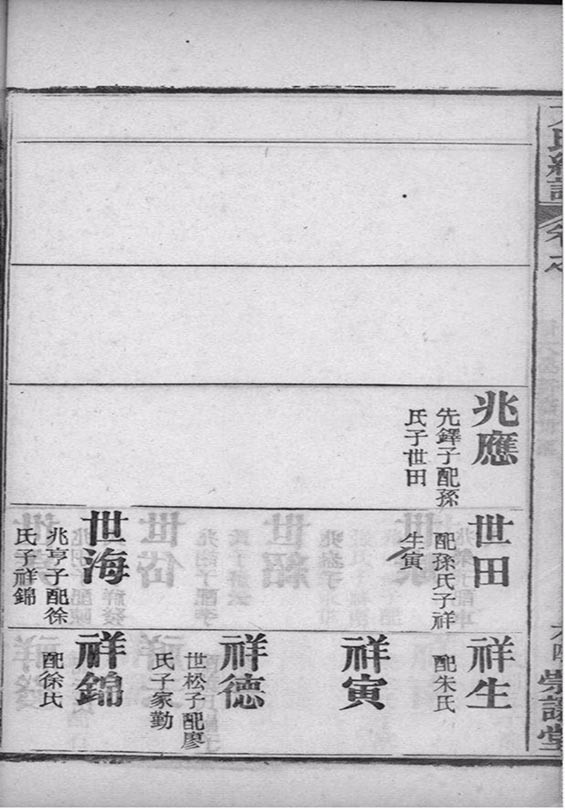 兆應
先鐸子配孫
氏子世田
世田
配孫氏子祥
生寅
世海
兆亨子配徐
氏子祥錦
祥生
配朱氏
祥寅
祥德
世松子配廖
氏子家勤
祥錦
配徐氏
崇讓堂